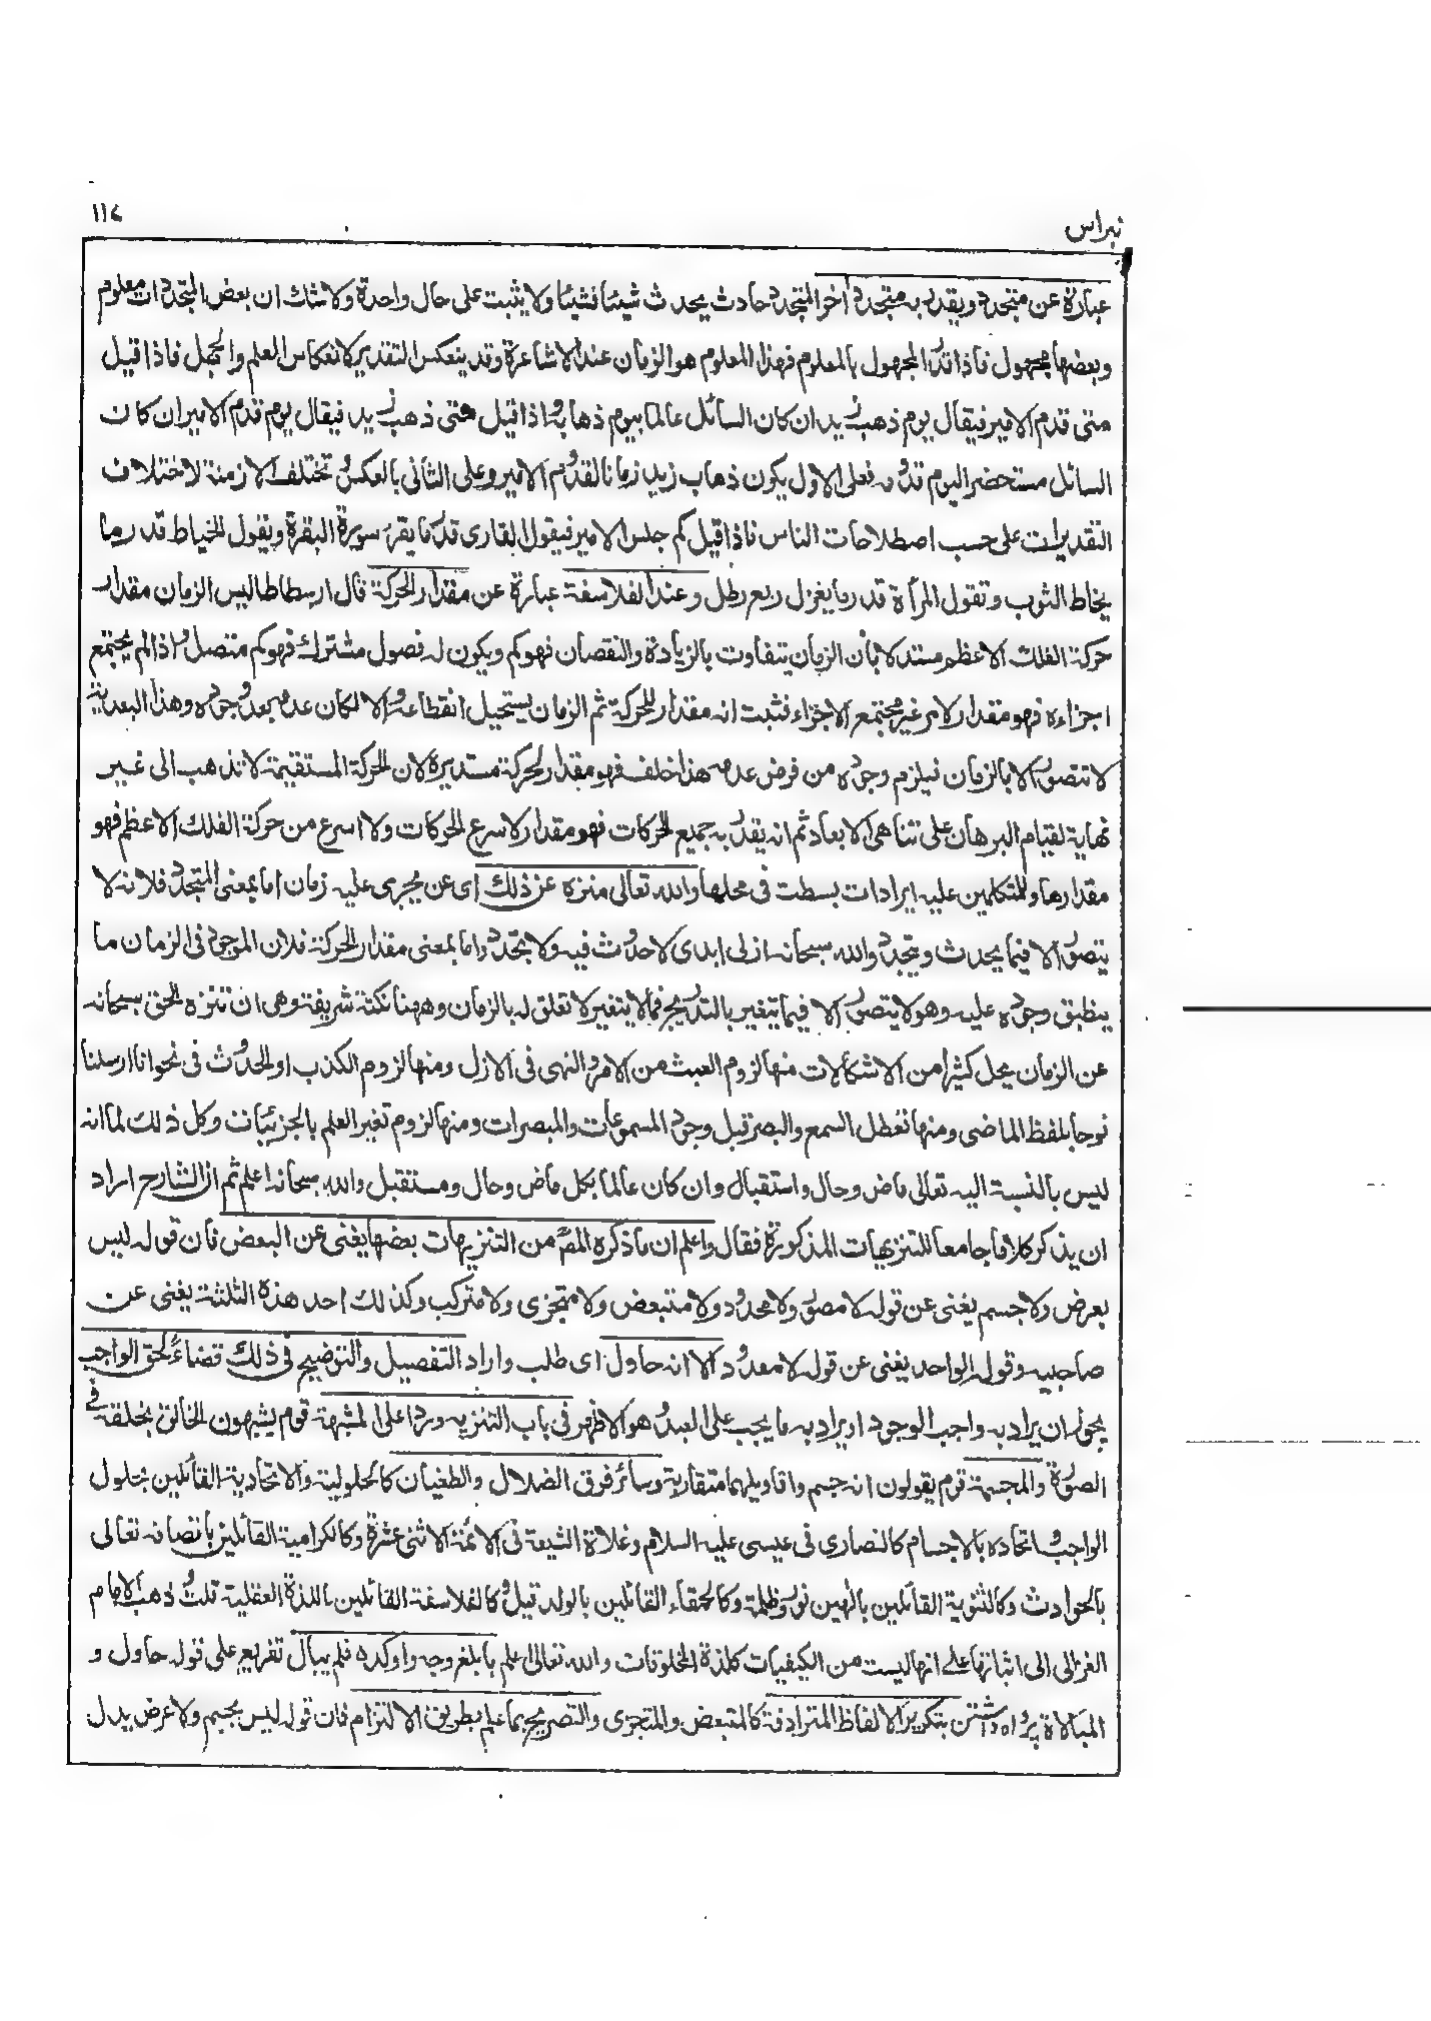 نبراس
١١٤
عبارة عن متجدد ويقدر به متجدد اخر المتجدد حادث يحدث شيئا فشيئا ولا يثبت على حال واحدة ولا شك ان بعض المتجددات معلوم
وبعضها مجهول فاذا قدّ المجهول بالمعلوم فهذا المعلوم هو الزمان عند الاشاعرة وقد ينعكس التقدير كانعكاس العلم والجهل فاذا قيل
متى قدم الامير فيقال يوم ذهب زيد ان كان السائل عالما بيوم ذهابه واذا قيل متى ذهب زيد فيقال يوم قدم الامير ان كان
السائل مستحضر اليوم قدومه فعلى الاول يكون ذهاب زيد زمانا لقدوم الامير وعلى الثانى بالعكس وتختلف الازمنة لاختلاف
التقديرات على حسب اصطلاحات الناس فاذا قيل كم جلس الامير فيقول القارى قدر ما يقرء سورة البقرة ويقول الخياط قدر ما
يخاط الثوب وتقول المرأة قدر ما يغزل ربع رطل وعند الفلاسفة عبارة عن مقدار الحركة قال ارسطاطاليس الزمان مقدار
حركة الفلك الاعظم مستدلا بأن الزمان يتفاوت بالزيادة والنقصان فهو كم ويكون له فصول مشترك فهو كم متصل واذا لم يجتمع
اجزاءه فهو مقدار لامر غير مجتمع الاجزاء فثبت انه مقدار للحركة ثم الزمان يستحيل انقطاعه والا لكان عدمه بعد وجوده وهذا البعدية
لا تتصور الا بالزمان فيلزم وجوده من فرض عدمه هذا خلف فهو مقدار لحركة مستديرة لان الحركة المستقيمة لا تذهب الى غير
نهاية لقيام البرهان على تناهى الابعاد ثم انه يقدر به جميع الحركات فهو مقدار لاسرع الحركات ولا اسرع من حركة الفلك الاعظم فهو
مقدارها وللمتكلمين عليه ايرادات بسطت فى محلها والله تعالى منزه عن ذلك اى عن يجرى عليه زمان اما بمعنى المتجدد فلانه لا
يتصور الا فيما يحدث ويتجدد والله سبحانه ازلى ابدى لا حدوث فيه ولا تجدد واما بمعنى مقدار الحركة فلان الموجود فى الزمان ما
ينطبق وجوده عليه وهو لا يتصور الا فيما يتغير بالتدريج فما لا يتغير لا تعلق له بالزمان وههنا نكتة شريفة وهى ان تنزه الحق سبحانه
عن الزمان يحل كثيرا من الاشكالات منها لزوم العبث من الامر والنهى فى الازل ومنها لزوم الكذب او الحدوث فى نحو انا ارسلنا
نوحا بلفظ الماضى ومنها تعطل السمع والبصر قبل وجود المسموعات والمبصرات ومنها لزوم تغير العلم بالجزئيات وكل ذلك لما انه
ليس بالنسبة اليه تعالى ماض وحال واستقبال وان كان عالما بكل ماض وحال ومستقبل والله سبحانه اعلم ثم ان الشارح اراد
ان يذكر كلاما جامعا للتنزيهات المذكورة فقال واعلم ان ما ذكره المصّ من التنزيهات بعضها يغنى عن البعض فان قوله ليس
بعرض ولا جسم يغنى عن قوله لا مصور ولا محدود ولا متبعض ولا متجزى ولا متركب وكذلك احد هذه الثلثة يغنى عن
صاحبيه وقوله الواحد يغنى عن قوله لا معدود الا انه حاول اى طلب واراد التفصيل والتوضيح فى ذلك قضاءً لحق الواجب
يجوز ان يراد به واجب الوجود او يراد به ما يجب على العبد وهو الاظهر فى باب التنزيه وردا على المشبهة قوم يشبهون الخالق بخلقة فى
الصورة والمجسمة قوم يقولون انه جسم واقاويلهما متقاربة وسائر فرق الضلال والطغيان كالحلولية والاتحادية القائلين بحلول
الواجب واتحاده بالاجسام كالنصارى فى عيسى عليه السلام وغلاة الشيعة فى الائمة الاثنى عشرة وكالكرامية القائلين باتصافه تعالى
بالحوادث وكالثنوية القائلين بالٰهين نور وظلمة وكالحمقاء القائلين بالولد قيل وكالفلاسفة القائلين باللذة العقلية قلت وذهب الامام
الغزالى الى اثباتها على انها ليست من الكيفيات كلذة المخلوقات والله تعالى اعلم بابلغ وجه واوكده فلم يبال تفريع على قوله حاول و
المبالاة پرواه داشتن بتكرير الالفاظ المترادفة كالمتبعض والمتجزى والتصريح بما علم بطريق الالتزام فان قوله ليس بجسم ولا عرض يدل